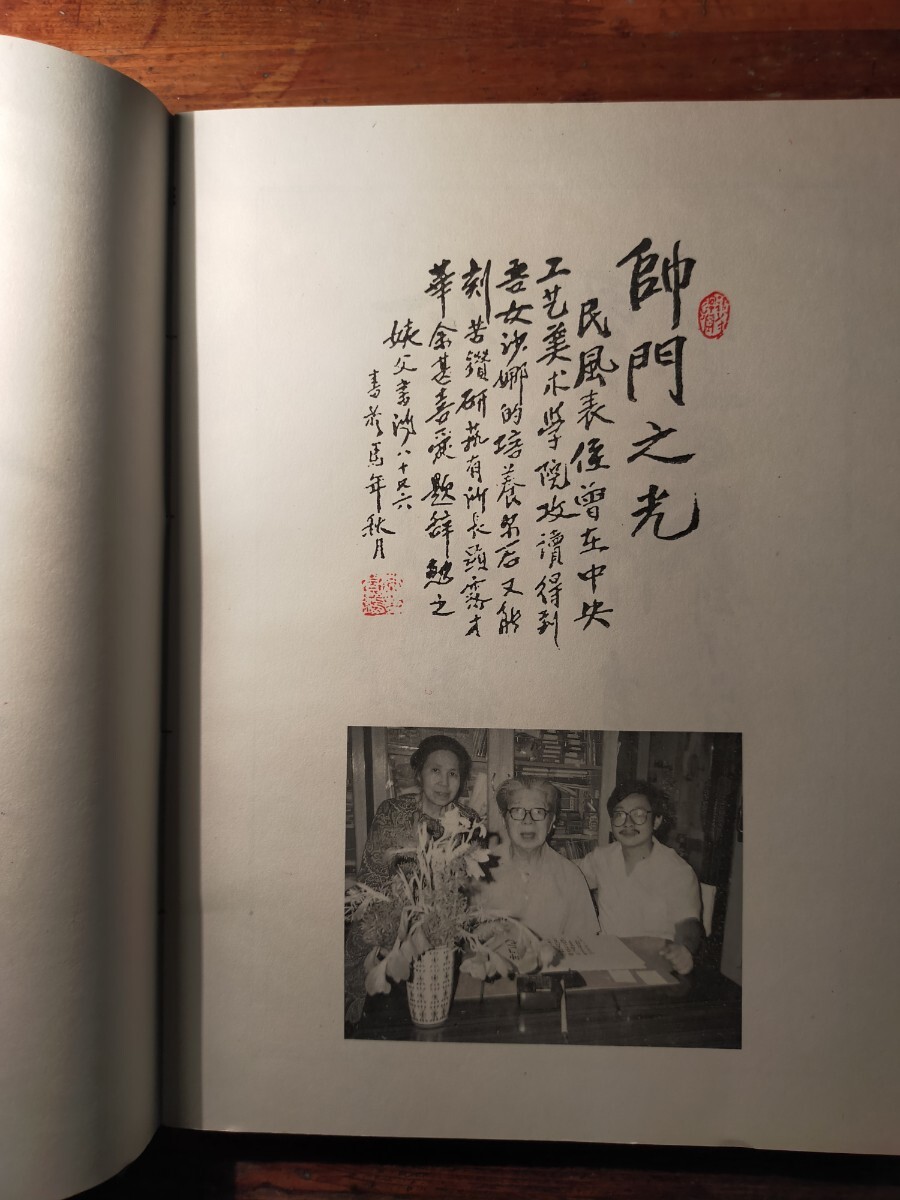 帥門之光
民風表侄曾在中央
工艺美术学院攻讀得到
吾女沙娜的培養尔后又能
刻苦鑽研藝有所長頭露才
華余甚喜愛題辞勉之
姨父書鸿八十又六
書於馬年秋月